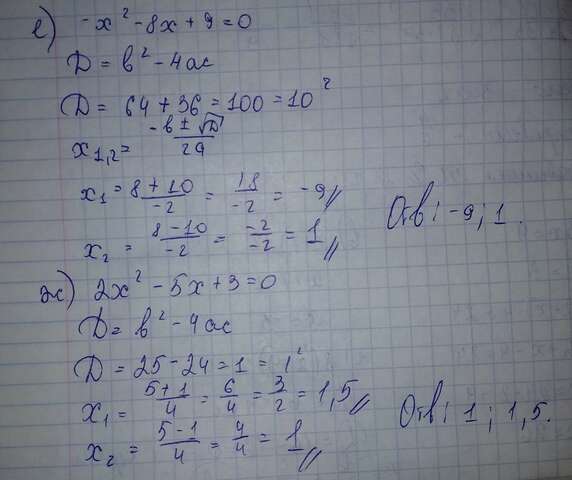 е) -x² - 8x + 9 = 0
D = b² - 4ac
D = 64 + 36 = 100 = 10²
x₁,₂ = (-b ± √D)/2a
x₁ = (8 + 10)/-2 = 18/-2 = -9//
x₂ = (8 - 10)/-2 = -2/-2 = 1//
Отв: -9; 1.
ж) 2x² - 5x + 3 = 0
D = b² - 4ac
D = 25 - 24 = 1 = 1²
x₁ = (5 + 1)/4 = 6/4 = 3/2 = 1,5//
x₂ = (5 - 1)/4 = 4/4 = 1//
Отв: 1; 1,5.